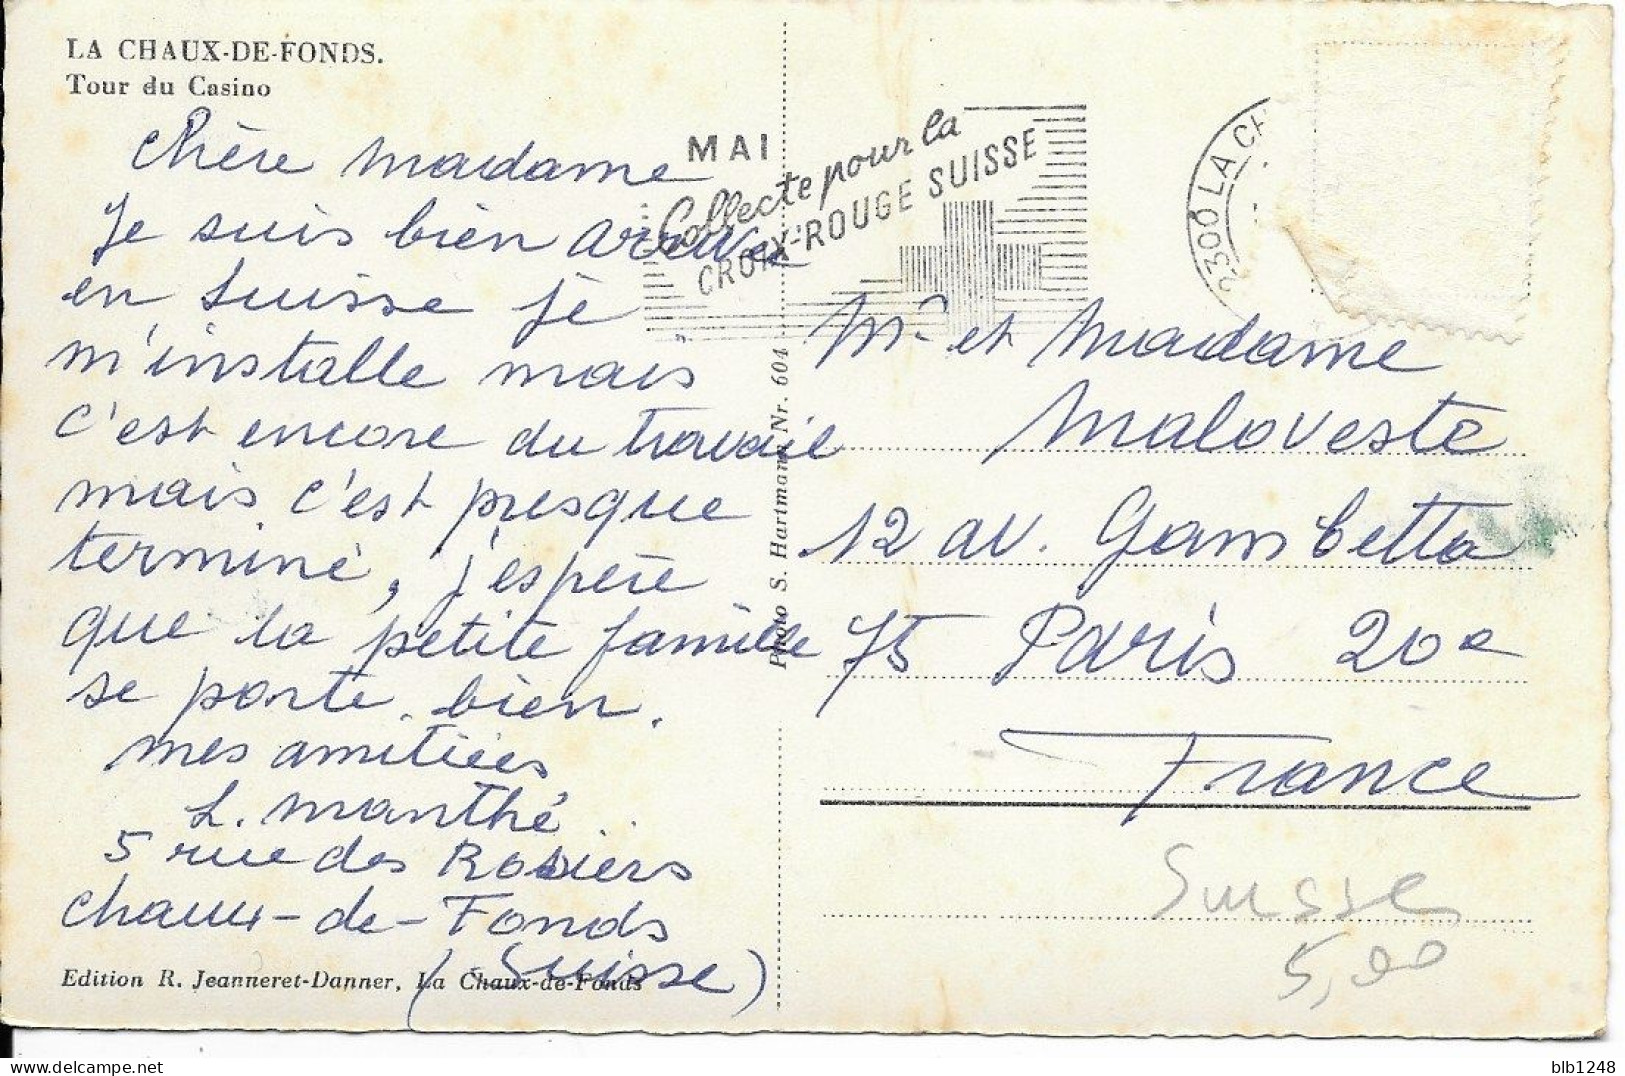 LA CHAUX-DE-FONDS.
Tour du Casino
Chère Madame
Je suis bien arrivée
en Suisse je
m'installe mais
c'est encore du travail
mais c'est presque
terminé, j'espère
que la petite famille
se porte bien.
mes amitiées
L. Manthé
5 rue des Rosiers
Chaux-de-Fonds
(Suisse)
Edition R. Jeanneret-Danner, La Chaux-de-Fonds
Photo S. Hartmann Nr. 604
MAI
Collecte pour la
CROIX-ROUGE SUISSE
2300 LA CH
Mr et Madame
Maloveste
12 av. Gambetta
75 Paris 20e
France
Suisse
5,00
delcampe.net
blb1248